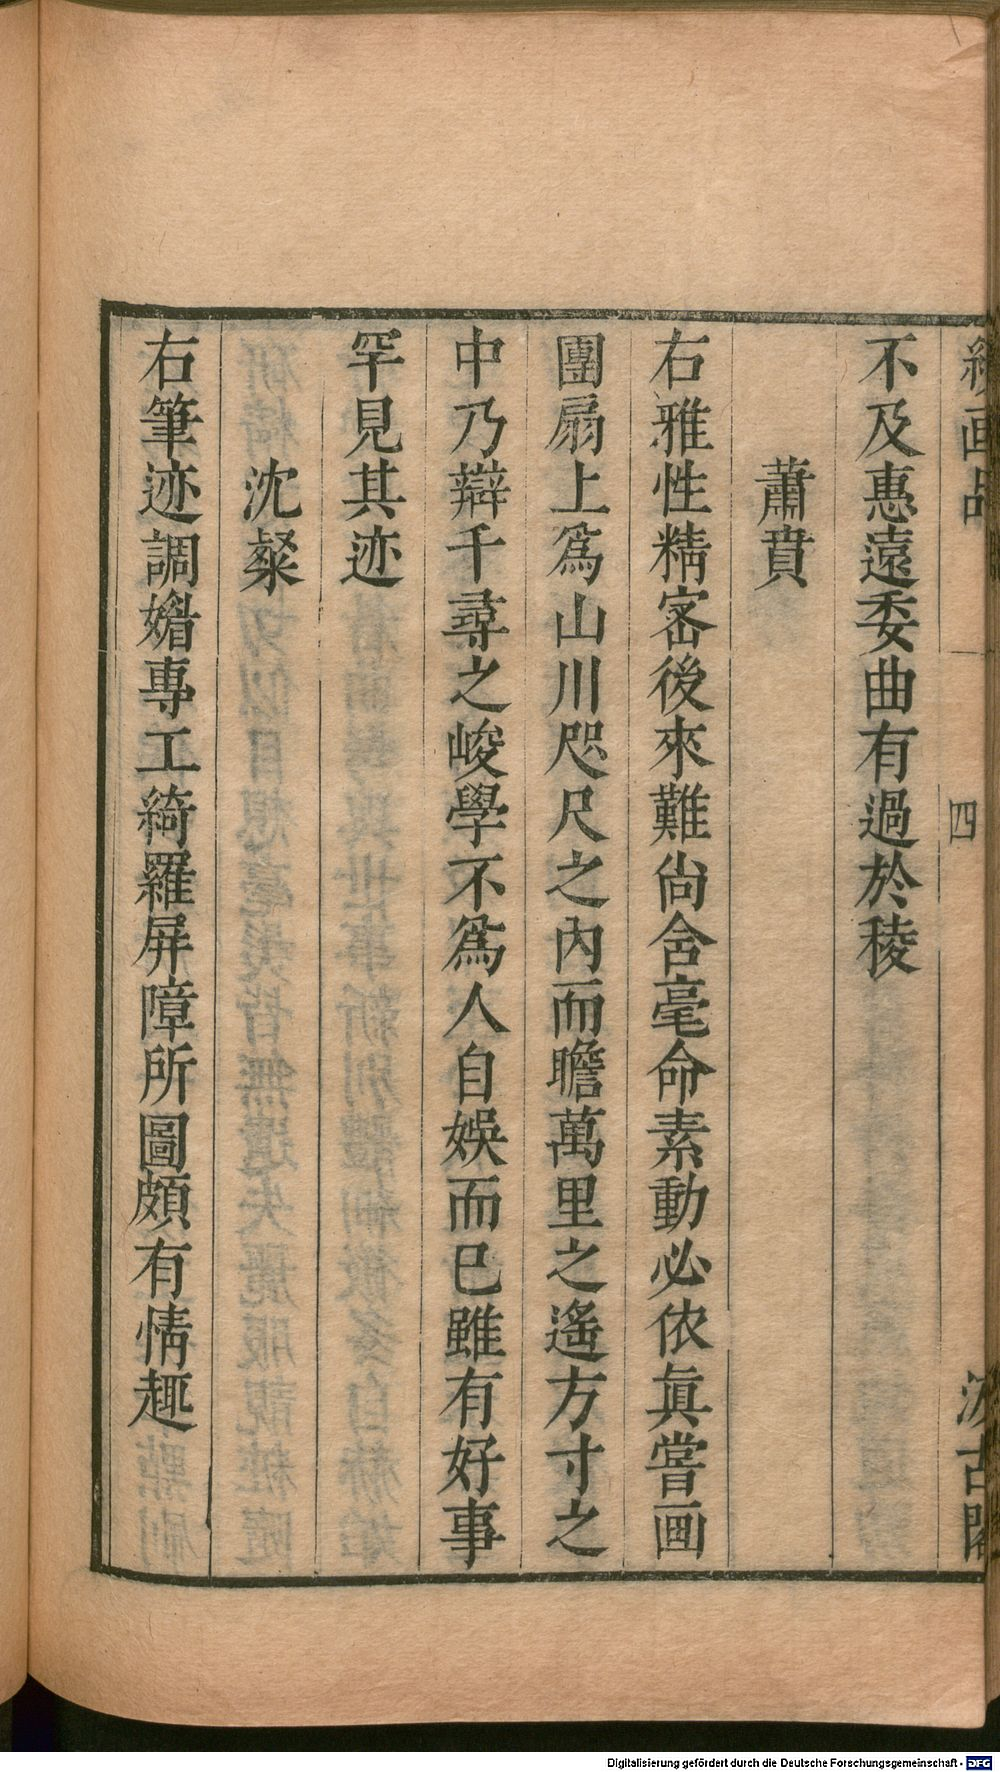 續画品
四
汲古閣
不及惠遠委曲有過於稜
蕭賁
右雅性精密後來難尙含毫命素動必依眞嘗画
團扇上爲山川咫尺之內而瞻萬里之遙方寸之
中乃辯千尋之峻學不爲人自娛而已雖有好事
罕見其迹
沈粲
右筆迹調媚專工綺羅屏障所圖頗有情趣
Digitalisierung gefördert durch die Deutsche Forschungsgemeinschaft - DFG